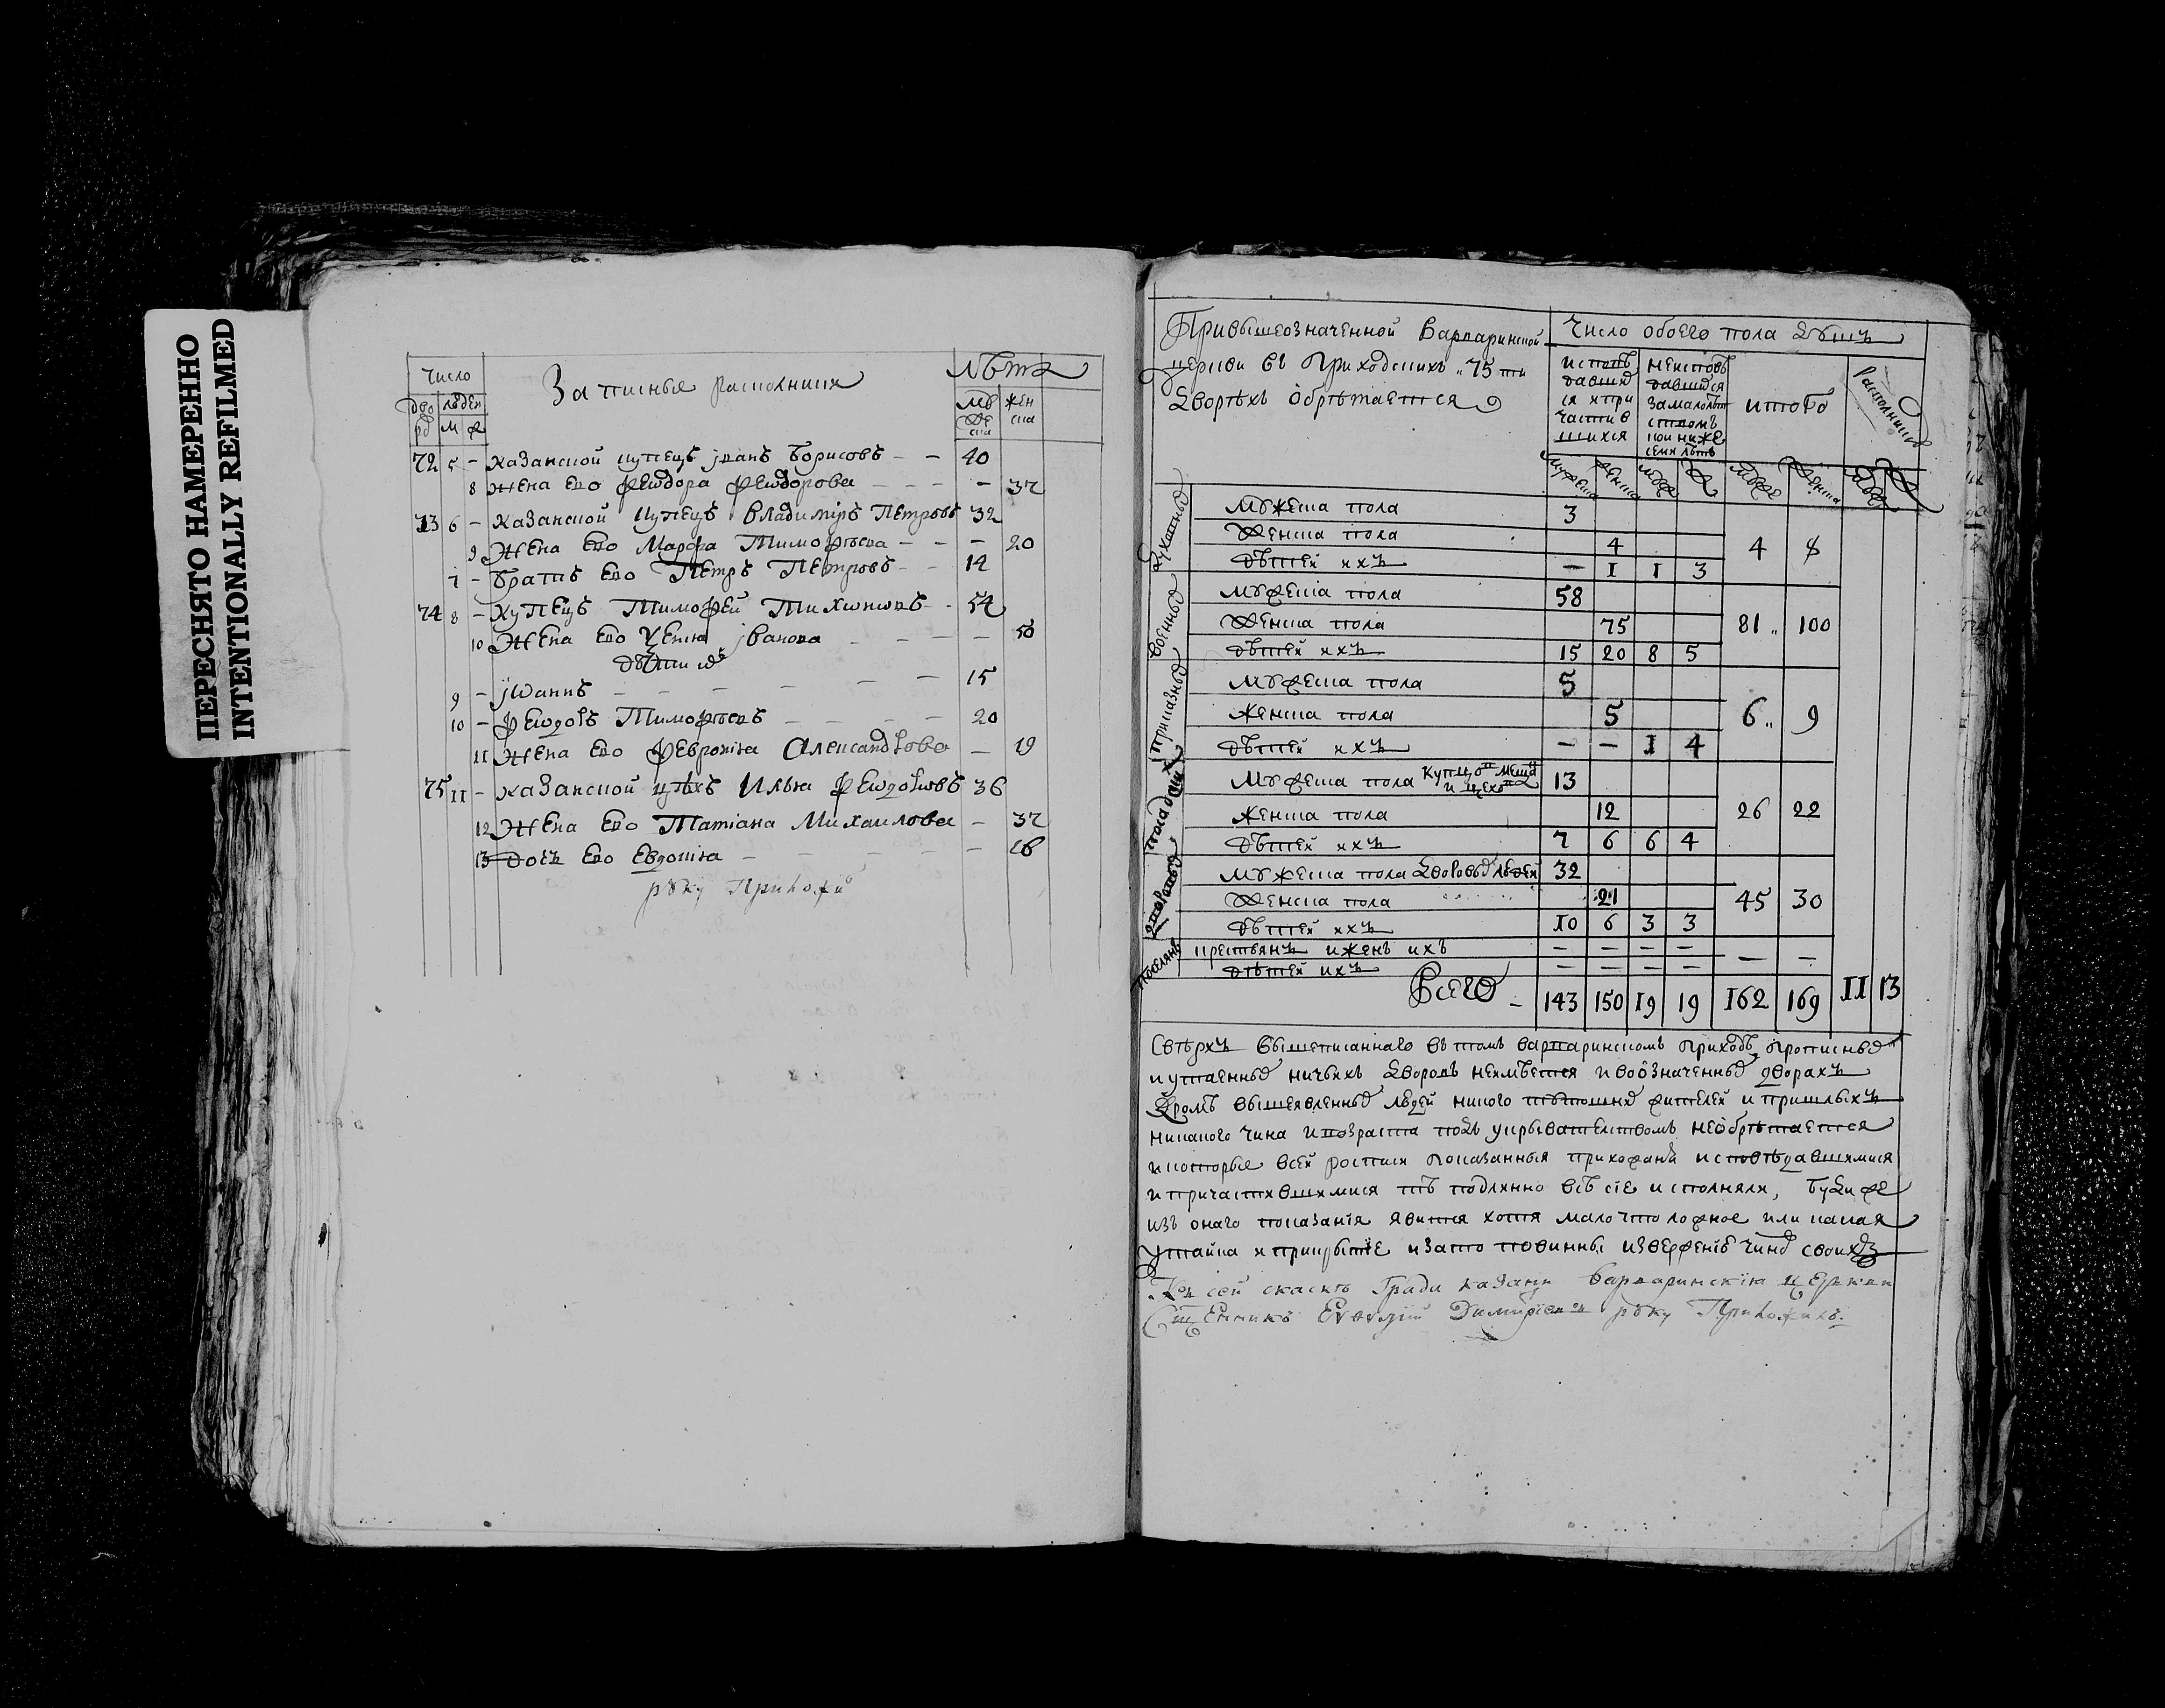 ПЕРЕСНЯТО НАМЕРЕННО
INTENTIONALLY REFILMED
Число
Записные расколники
лѣта
дво людей
ро м ж
муже жен
ска ска
72 5 – казанской купецъ іванъ борисовъ – – 40
8 жена ево Феѡдора Феѡдорова – – – – 37
73 6 – казанской купецъ владиміръ Петровъ 32
9 Жена ево Марфа Тимофѣева – – – 20
7 – братъ ево Петръ Петровъ – – 14
74 8 – купецъ Тимофей – 54
10 Жена ево іванова – – – – 50
дѣти ихъ
9 – іѡаннъ – – – – – – 15
10 – Феѡдоръ Тимофѣевъ – – – – 20
11 Жена ево Февронія Александрова – 19
75 11 – казанской цѣхъ Илья Феѡдоровъ 36
12 Жена ево Татіана Михаилова – 37
13 дочь ево Евдокіа – – – – – – 16
рꙋку Приложи
Привышеозначенной варваринской
церкви въ Приходскихъ 75 ти
дворѣхъ обрѣтается
Число обоего пола дꙋшъ
исповѣ неисповѣ
давших давшихся
ся и при замалолѣт
части в ствомъ
шихся кои ниже
семи лѣтъ
итого
расколников
мужеска женска муж ж муже женска муж ж
Духовных
Мꙋжеска пола 3
Женска пола 4 4 8
дѣтей ихъ – 1 1 3
военных
Мꙋжеска пола 58
Женска пола 75 81 100
дѣтей ихъ 15 20 8 5
Приказных
Мꙋжеска пола 5
женска пола 5 6 9
дѣтей ихъ – – 1 4
посадских
Мꙋжеска пола Купцов мещан и цехов 13
женска пола 12 26 22
дѣтей ихъ 7 6 6 4
дворовых
Мꙋжеска пола Дворовых людей 32
Женска пола 21 45 30
дѣтей ихъ 10 6 3 3
поселянъ
крестьянъ и женъ ихъ – – – –
дѣтей ихъ – – – – – –
Всего – 143 150 19 19 162 169 11 13
Сверхъ вышеписаннаго въ томъ варваринскомъ приходѣ прописных
и утаенных ничьихъ дворовъ неимѣется и во означенных дворахъ
кромѣ вышеявленных людей никого тꙋтошних жителей и пришлыхъ
никакого чина и возраста подъ укрывателствомъ необрѣтается
и которые всей росписи показанныя прихожанѣ исповѣдавшимися
и причастившимися тѣ подлинно всѣ сіе исполняли, буди же
изъ онаго показанія явится хотя мало что ложное или какая
утайка и прикрытіе и за то повинны изверженію чинов своихъ
Къ сей скаскѣ Града казани варваринскія церкви
Сщенникъ Димитріевъ рꙋку Приложилъ.